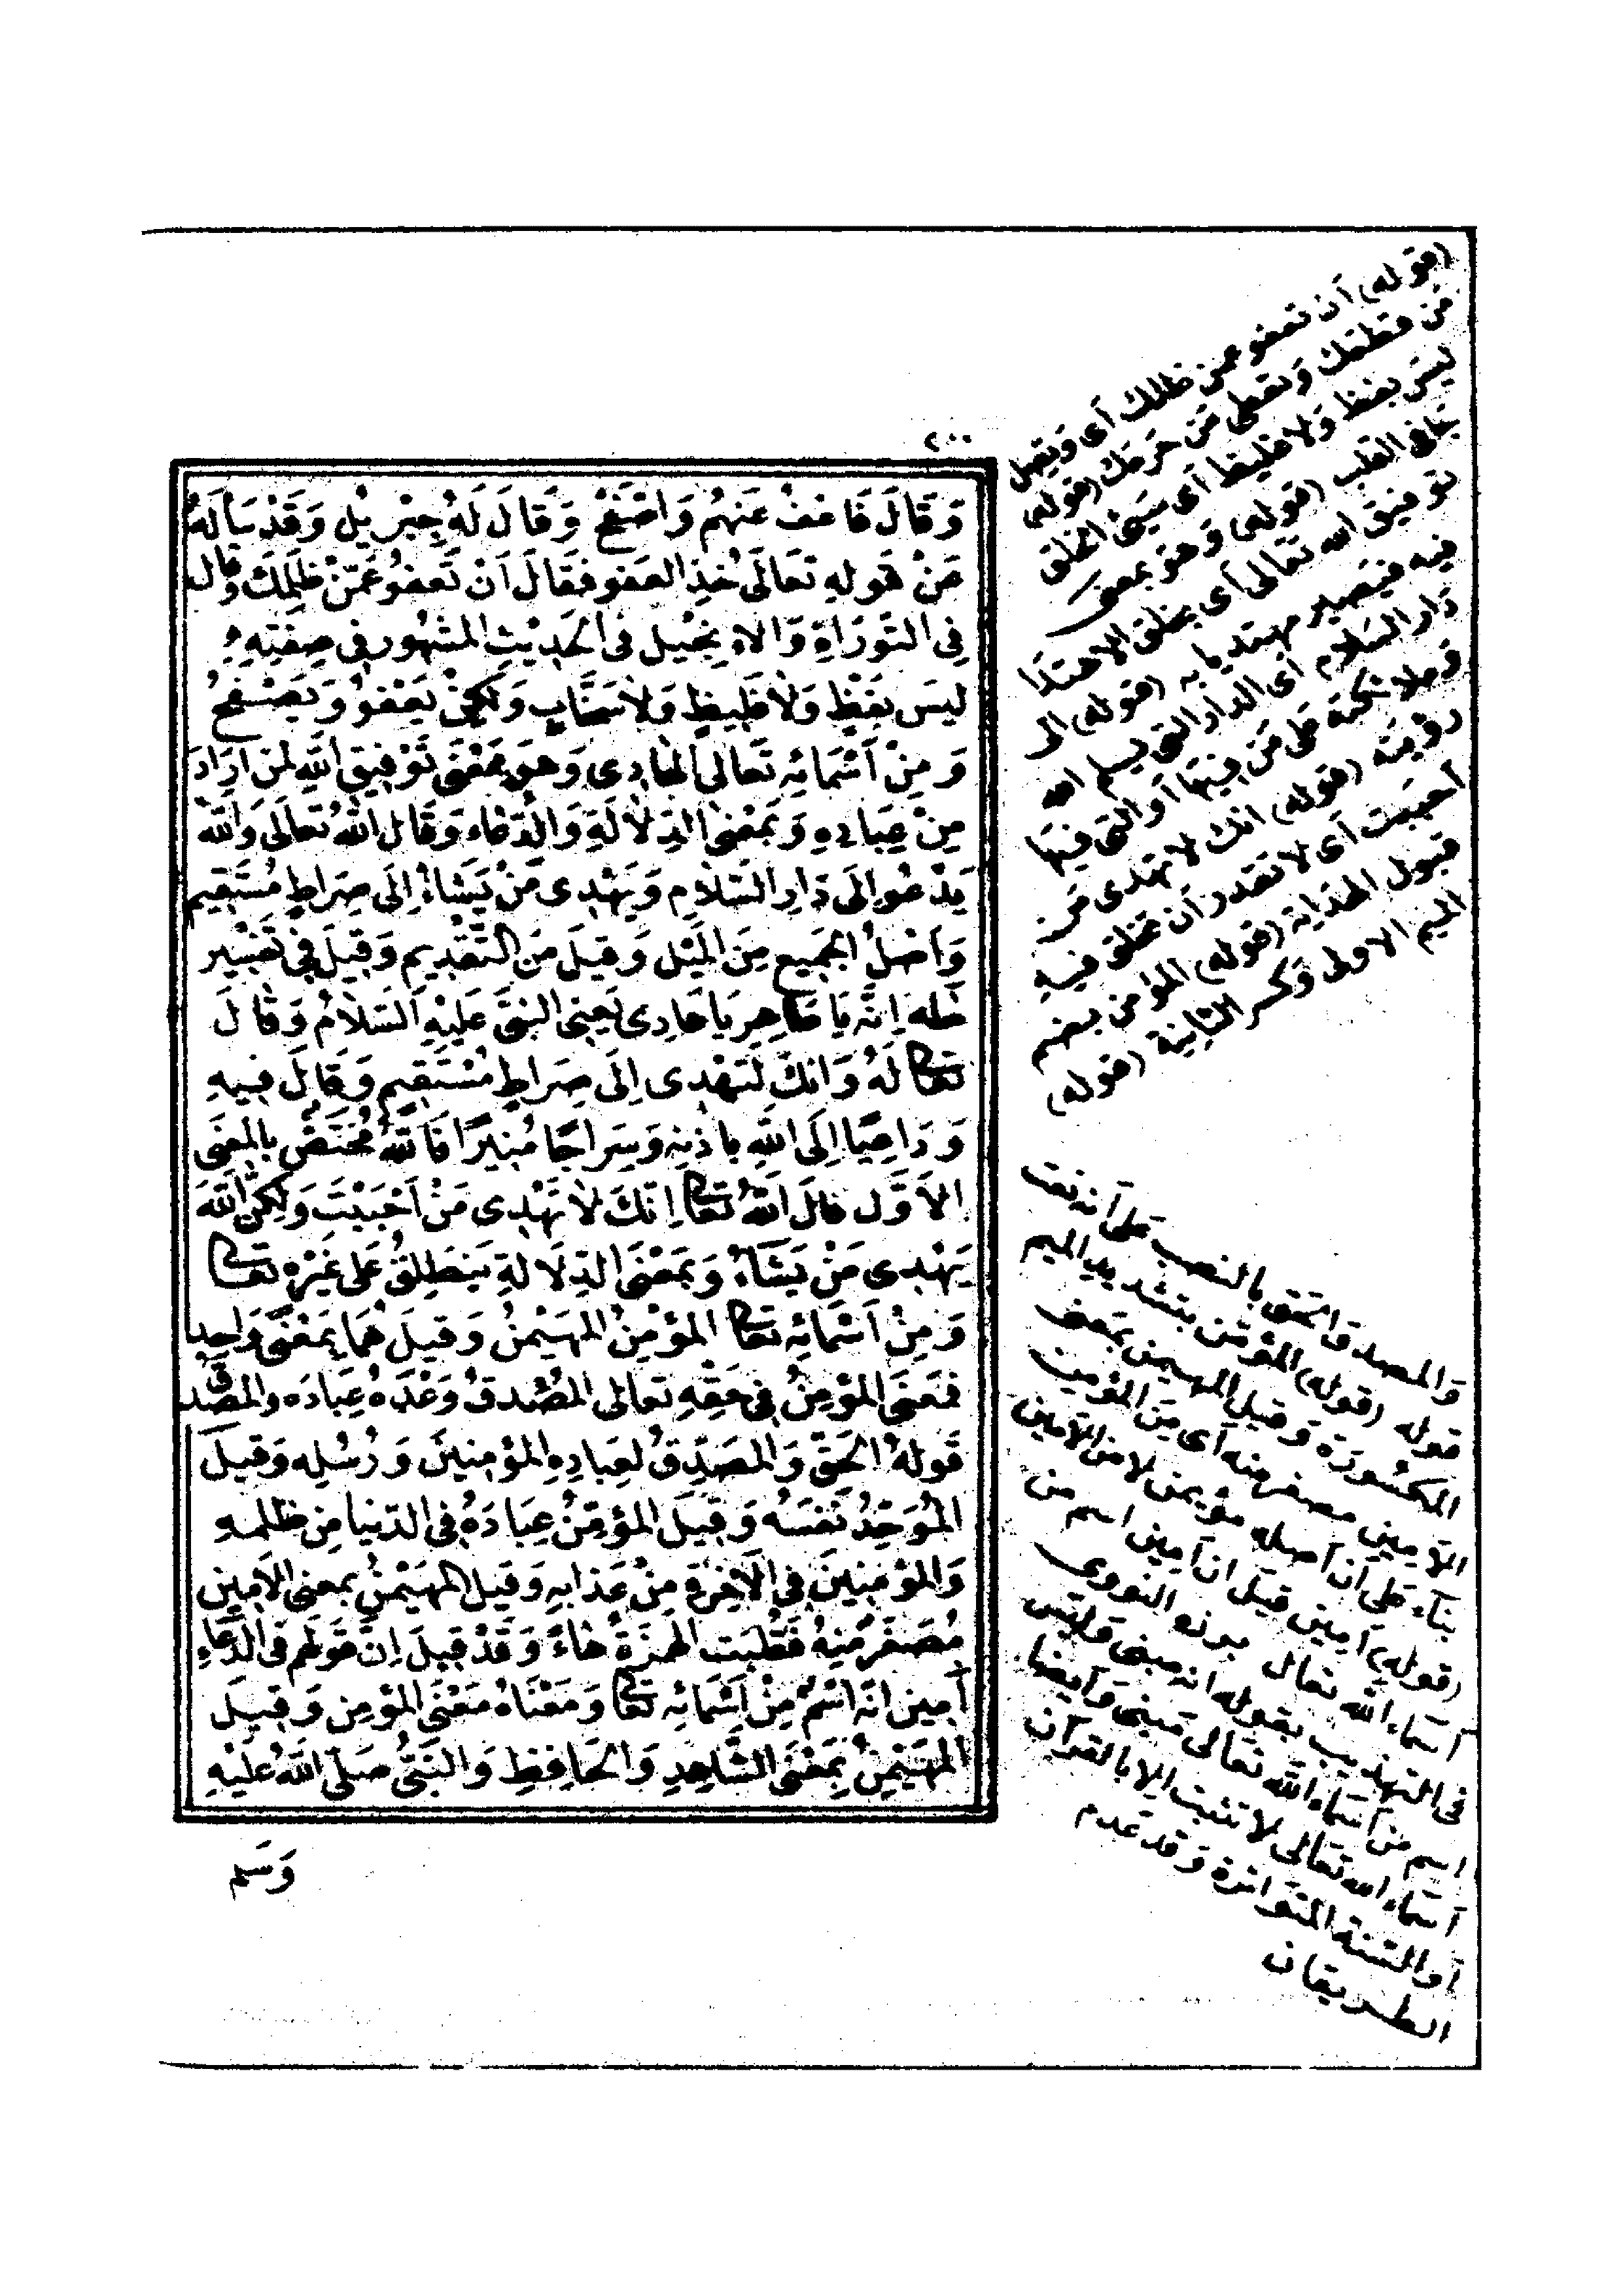 ٢٠٠
وَقَالَ فَاعْفُ عَنْهُمْ وَاصْفَحْ وَقَالَ لَهُ جِبْرِيْل وَقَدْ سَأَلَهُ
عَنْ قَولِهِ تَعَالَى خُذِ العَفو فَقَالَ اَنْ تَعفُوَ عَمَّنْ ظَلَمَكَ وَقَال
فِى التَّورَاةِ وَالاِنجِيْل فى الحَدِيْثِ المشهُور فى صِفَتِهِ
لَيسَ بفَظٍّ وَلَا غَلِيظٍ وَلَا سَخَّابٍ وَلٰكِنْ يَعْفُوْ وَيَصْفَحُ
وَمِنْ اَسْمَائِهِ تَعَالى الهَادِى وَهوَ بمَعْنَى تَوْفيقِ اللّٰهِ لمَن اَرَادَ
مِنْ عِبَادِهِ وَبمَعْنَى الدِّلَالَةِ وَالدُّعَاء وَقَال اللّٰهُ تعَالَى وَاللّٰهُ
يَدْعُو اِلَى دَارِ السَّلَامِ وَيَهْدِى مَنْ يَشَاءُ اِلَى صِرَاطٍ مُسْتَقِيم
وَاَصْلُ الجَمِيعِ مِنَ المَيْل وَقِيلَ مَن التَّقْدِيمِ وَقيلَ فِى تَفْسِير
طٰهٰ اِنَّه يَا طَاهِر يَا هَادِى يَعنِى النَّبِىَّ عَلَيْهِ السَّلَامُ وَقَالَ
تعَالى لَهُ وَاِنكَ لَتَهْدِى اِلَى صِرَاطٍ مُسْتَقيم وَقَالَ فيهِ
وَدَاعِيًا اِلَى اللّٰهِ باذْنِهِ وَسِرَاجًا مُنِيرًا فَاللّٰهُ مُختَصٌّ بالمَعنَى
الاَوَّل قالَ اللّٰهُ تعَالى اِنَّكَ لَا تَهْدِى مَنْ اَحْبَبْتَ وَلكِنَّ اللّٰهَ
يَهْدِى مَنْ يَشَاءُ وَبمَعْنَى الدِّلَالَةِ يَنطَلِقُ عَلى غَيْرِه تعَالى
وَمِنْ اَسْمَائِه تعَالى المؤْمِنُ المهَيْمنُ وَقيلَ هُمَا بمَعْنًى وَاحِد
فمَعنَى المؤْمِنُ فى حَقِّهِ تَعَالى المُصَدقُ وَعْدَهُ عِبَادَه والمصَدِّق
قَولَهُ الحَقَّ وَالمصَدِّقُ لعِبَادِهِ المؤْمِنينَ وَرُسُلِهِ وَقيلَ
المُوَحِّدُ نَفسَهُ وَقِيلَ المؤَمِّنُ عِبَادَهُ فى الدّنيَا من ظلمهِ
وَالمؤْمِنِينَ فى الآخِرَةِ مِنْ عَذابهِ وَقيل المهَيْمنُ بمعنى الاَمِين
مُصَغَّرٌ مِنهُ فَقُلِبَت الهَمزَةُ هَاءً وَقَدْ قيلَ اِنَّ قَولهُم فى الدّعَاءِ
آمِين اِنَّه اسْمٌ مِنْ اَسْمَائِه تعَالى وَمَعْنَاهُ مَعْنَى المؤمِن وَقيلَ
المهَيْمِنُ بمَعْنَى الشَّاهِدِ وَالحَافِظِ وَالنَّبىُّ صَلَّى اللّٰهُ عَلَيْهِ
وَسَلم
(قوله) اَن تعفو عمن ظلمك اَى وَيصل
مَن قطعك وَتعطى مَن حَرَمك (قوله)
ليسَ بفظ وَلا غليظ اَى سَيئ الخلق
جَافى القلب (قوله) وَهوَ بمعنى
توفيق الله تعَالى اَى يخلق الاهتدا
فيه فيَصير مهتديا به (قوله) الى
دَار السلام اى الدار التى يسلم الله
وَملائكته عَلى مَن فيهَا اَو التى فيهَا
رؤيته (قوله) انك لا تهدى مَن
اَحببت اَى لا تقدر اَن تخلق فيهِ
قبول الهداية (قوله) المؤمن بضم
الميم الاولى وَكسر الثانية (قوله)
وَالمصدق الحَق بالنصب عَلى اَنه نعت
قوله (قوله) المؤمّن بتشديد الميم
المكسُورَة وَقيل المهيمن بمَعنى
الاَمين مصغر منه اَى مِن المؤمن
بناء عَلى اَن اَصله مؤيمن لا من الاَمين
(قوله) آمين قيل ان آمين اسم من
اَسمَاء الله تعالى النووى
فى التهذيب بقوله انه مبنى وَليسَ
اسم من اَسمَاء الله تعالى مَبنى وَاَيضا
اَسمَاء الله تعَالى لا تثبت الا بالقرآن
اَو السنة المتوَاترة وَقد عَدم
الطريقان